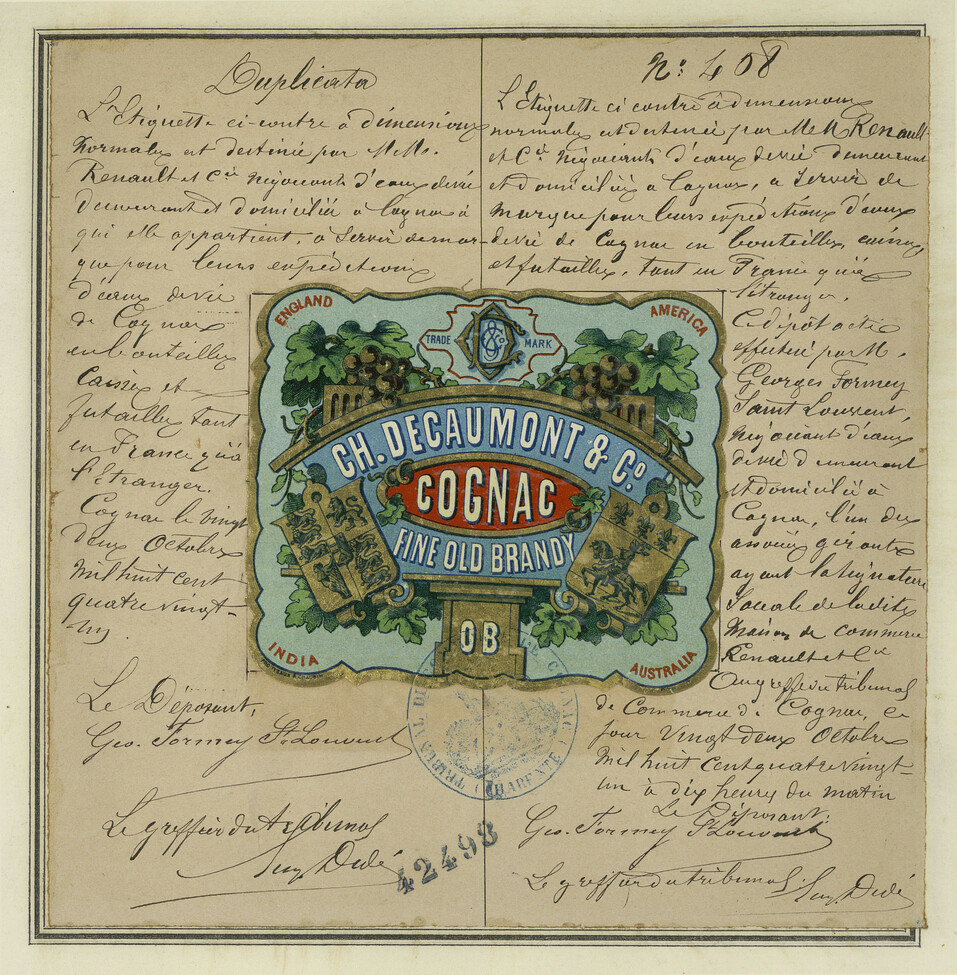 Duplicata
L'Etiquette ci-contre à dimensions
Normales est destinée par M.M.
Renault et Cie Négociants d'eaux de vie
demeurant et domiciliés à Cognac à
qui elle appartient, à servir de mar-
que pour leurs expéditions
d'eaux de vie
de Cognac
en bouteilles
Caisses et
futailles tant
en France qu'à
l'Etranger.
Cognac le vingt
deux Octobre
mil huit cent
quatre vingt-
un
Le Déposant,
Geo. Formey St Louvent
Le greffier du tribunal
Eug. Didé
No: 408
L'Etiquette ci contre à dimensions
normales est destinée par M.M. Renault
et Cie Négociants d'eaux de vie demeurant
et domiciliés à Cognac, à servir de
marque pour leurs expéditions d'eaux
de vie de Cognac en bouteilles, caisses,
et futailles, tant en France qu'à
l'étranger.
Ce dépôt a été
effectué par M.
Georges Formey
Saint Louvent,
Négociant d'eaux
de vie demeurant
et domicilié à
Cognac, l'un des
associés gérants
ayant la signature
Sociale de ladite
Maison de commerce
Renault et Cie
Au greffe du tribunal
de Commerce de Cognac, ce
jour vingt deux Octobre
mil huit cent quatre vingt-
un à dix heures du matin
Le Déposant:
Geo. Formey St Louvent
Le greffier du tribunal
Eug. Didé
ENGLAND
AMERICA
TRADE MARK
CH. DECAUMONT & Co
COGNAC
FINE OLD BRANDY
OB
INDIA
AUSTRALIA
TRIBUNAL DE COGNAC
CHARENTE
42498